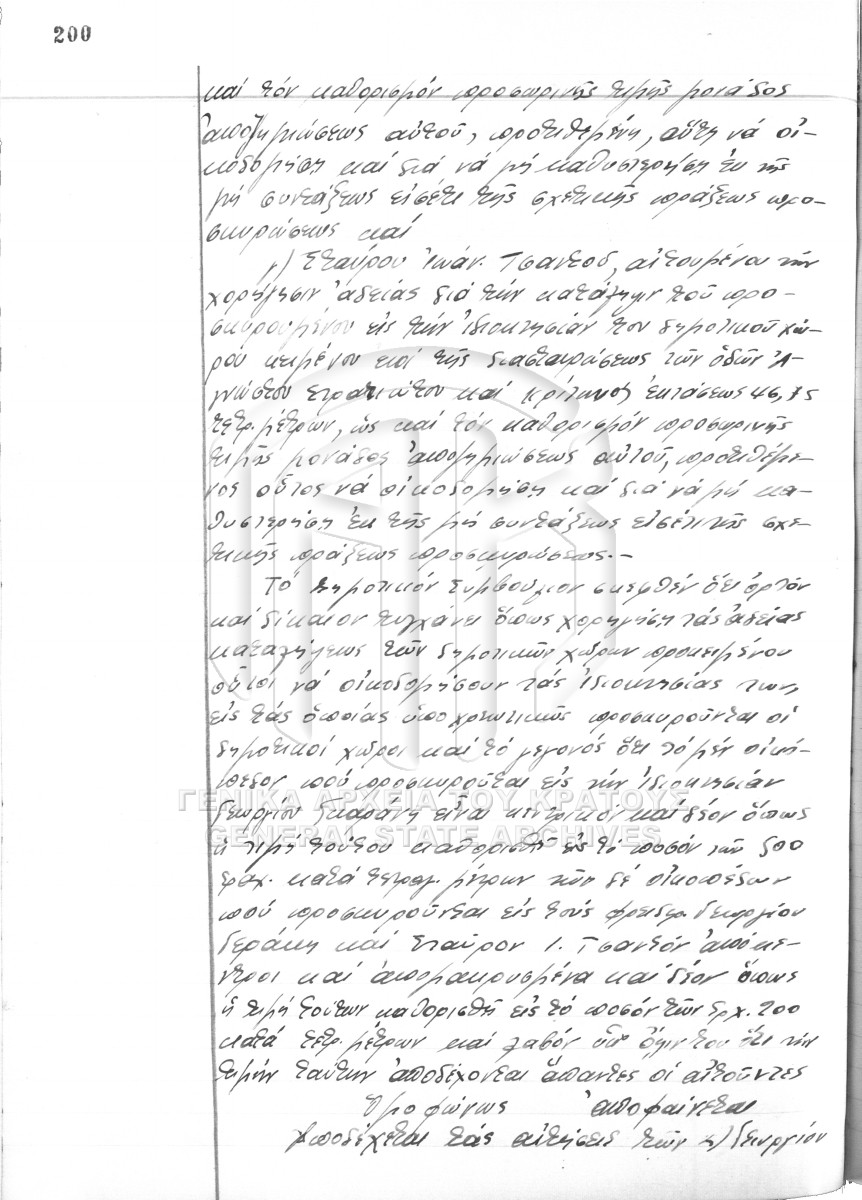 200
καί τόν καθορισμόν προσωρινῆς τιμῆς μονάδος
ἀποζημιώσεως αὐτοῦ, προτιθεμένη, αὕτη νά οἰ-
κοδομήσῃ καί διά νά μή καθυστερήσῃ ἐκ τῆς
μή συντάξεως εἰσέτι τῆς σχετικῆς πράξεως προ-
σκυρώσεως καί
γ) Σταύρου Ἰωάν. Τσαντοῦ, αἰτουμένου τήν
χορήγησιν ἀδείας διά τήν κατάληψιν τοῦ προ-
σκυρουμένου εἰς τήν ἰδιοκτησίαν του δημοτικοῦ χώ-
ρου κειμένου ἐπί τῆς διασταυρώσεως τῶν ὁδῶν Ἀ-
γνώστου Στρατιώτου καί Κρίτωνος ἐκτάσεως 46,75
τετρ. μέτρων, ὡς καί τόν καθορισμόν προσωρινῆς
τιμῆς μονάδος ἀποζημιώσεως αὐτοῦ, προτιθέμε-
νος οὗτος νά οἰκοδομήσῃ καί διά νά μή κα-
θυστερήσῃ ἐκ τῆς μή συντάξεως εἰσέτι τῆς σχε-
τικῆς πράξεως προσκυρώσεως.-
Τό Δημοτικόν Συμβούλιον σκεφθέν ὅτι ὀρθόν
καί δίκαιον τυγχάνει ὅπως χορηγήσῃ τάς ἀδείας
καταλήψεως τῶν δημοτικῶν χώρων προκειμένου
οὗτοι νά οἰκοδομήσουν τάς ἰδιοκτησίας των,
εἰς τάς ὁποίας ὑποχρεωτικῶς προσκυροῦνται οἱ
δημοτικοί χῶροι καί τό γεγονός ὅτι τό μέν οἰκό-
πεδον πού προσκυροῦται εἰς τήν ἰδιοκτησίαν
Γεωργίου Γκαράνη εἶναι κεντρικόν καί δέον ὅπως
ἡ τιμή τούτου καθορισθῇ εἰς τό ποσόν τῶν 500
δραχ. κατά τετραγ. μέτρων τῶν δέ οἰκοπέδων
πού προσκυροῦνται εἰς τούς Γεωργίου
Γεράκη καί Σταῦρον Ι. Τσαντόν ἀπόκε-
ντροι καί ἀπομακρυσμένα καί δέον ὅπως
ἡ τιμή τούτων καθορισθῇ εἰς τό ποσόν τῶν δρχ. 200
κατά τετρ. μέτρων καί λαβόν ὑπ' ὄψιν του ὅτι τήν
τιμήν ταύτην ἀποδέχονται ἅπαντες οἱ αἰτοῦντες
Ὁμοφώνως ἀποφαίνεται
Ἀποδέχεται τάς αἰτήσεις τῶν α) Γεωργίου
ΓΕΝΙΚΑ ΑΡΧΕΙΑ ΤΟΥ ΚΡΑΤΟΥΣ
GENERAL STATE ARCHIVES